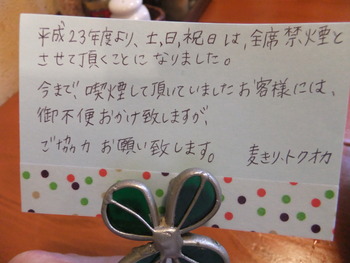 平成23年度より、土,日,祝日は、全席禁煙と
させて頂くことに なりました。
今まで、喫煙して頂いていましたお客様には、
御不便おかけ致しますが、
ご協力 お願い致します。 麦きり・トクオカ